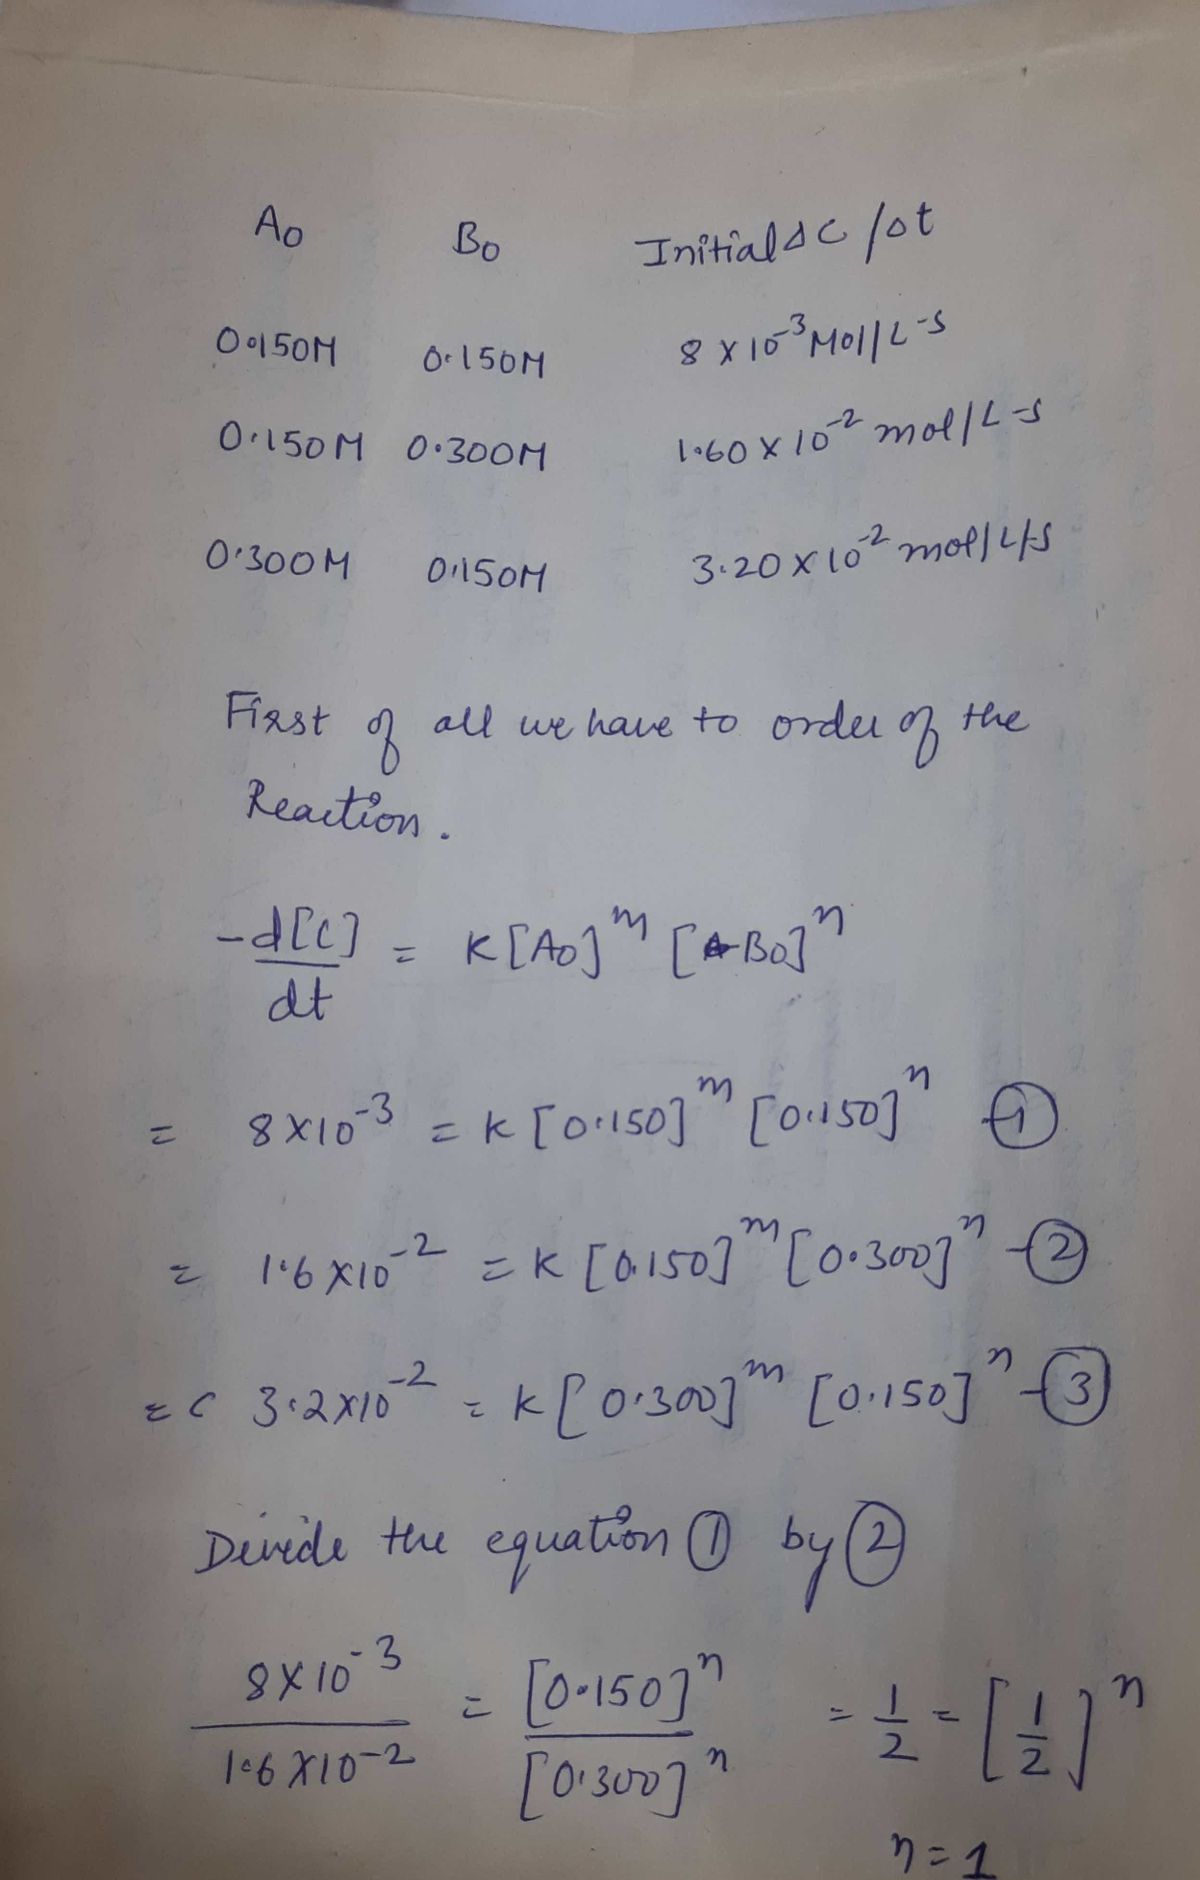 A₀ B₀ Initial ΔC/Δt
0.150M 0.150M 8 × 10⁻³ Mol/L-s
0.150M 0.300M 1.60 × 10⁻² mol/L-s
0.300M 0.150M 3.20 × 10⁻² mol/L/s
First of all we have to order of the
Reaction.
-d[C]/dt = K[A₀]ᵐ [B₀]ⁿ
= 8×10⁻³ = K[0.150]ᵐ [0.150]ⁿ -①
= 1.6×10⁻² = K[0.150]ᵐ [0.300]ⁿ -②
= C 3.2×10⁻² = K[0.300]ᵐ [0.150]ⁿ -③
Devide the equation ① by ②
8×10⁻³/1.6×10⁻² = [0.150]ⁿ/[0.300]ⁿ = 1/2 = [1/2]ⁿ
n=1